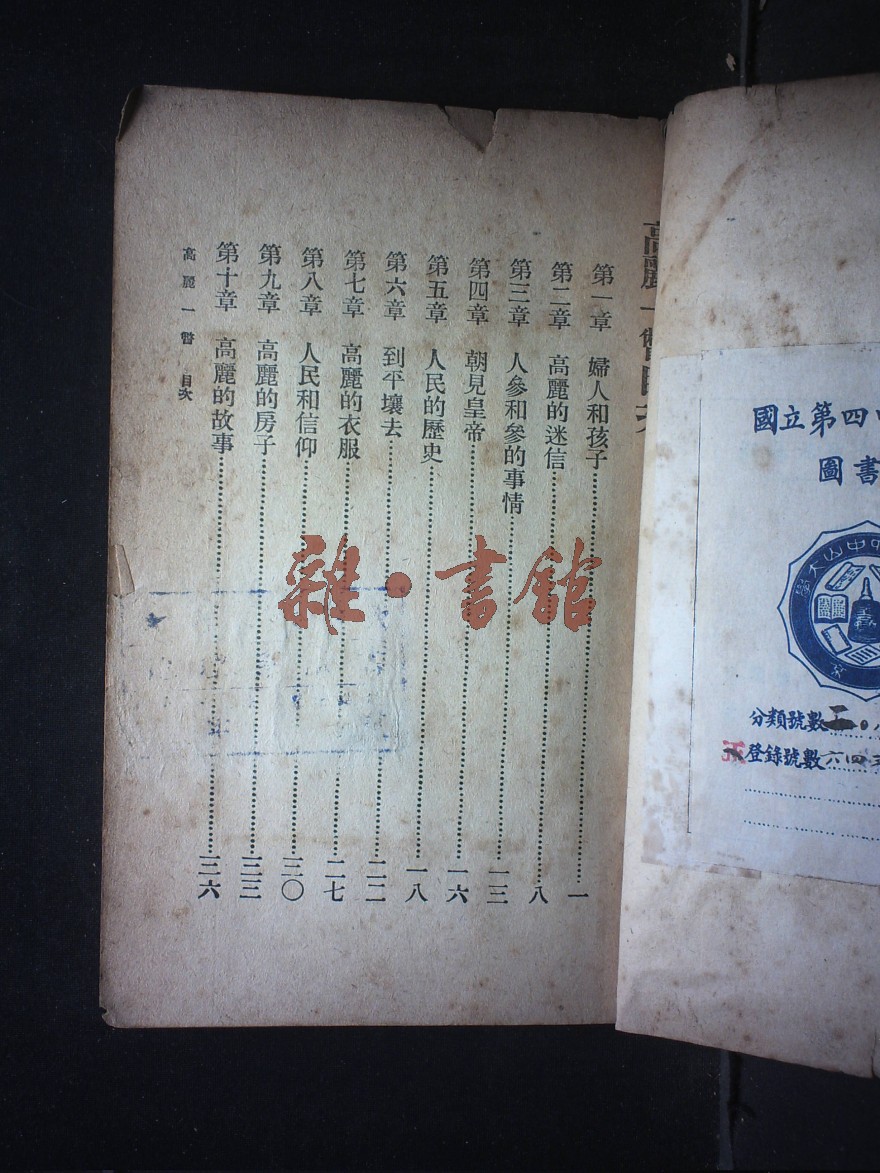 國立第四中
圖書
中山大學
分類號數
登錄號數六四五
高麗一瞥目次
第一章 婦人和孩子……一
第二章 高麗的迷信……八
第三章 人參和參的事情……一三
第四章 朝見皇帝……一六
第五章 人民的歷史……一八
第六章 到平壤去……二二
第七章 高麗的衣服……二七
第八章 人民和信仰……三〇
第九章 高麗的房子……三三
第十章 高麗的故事……三六
高麗一瞥 目次
雜·書館